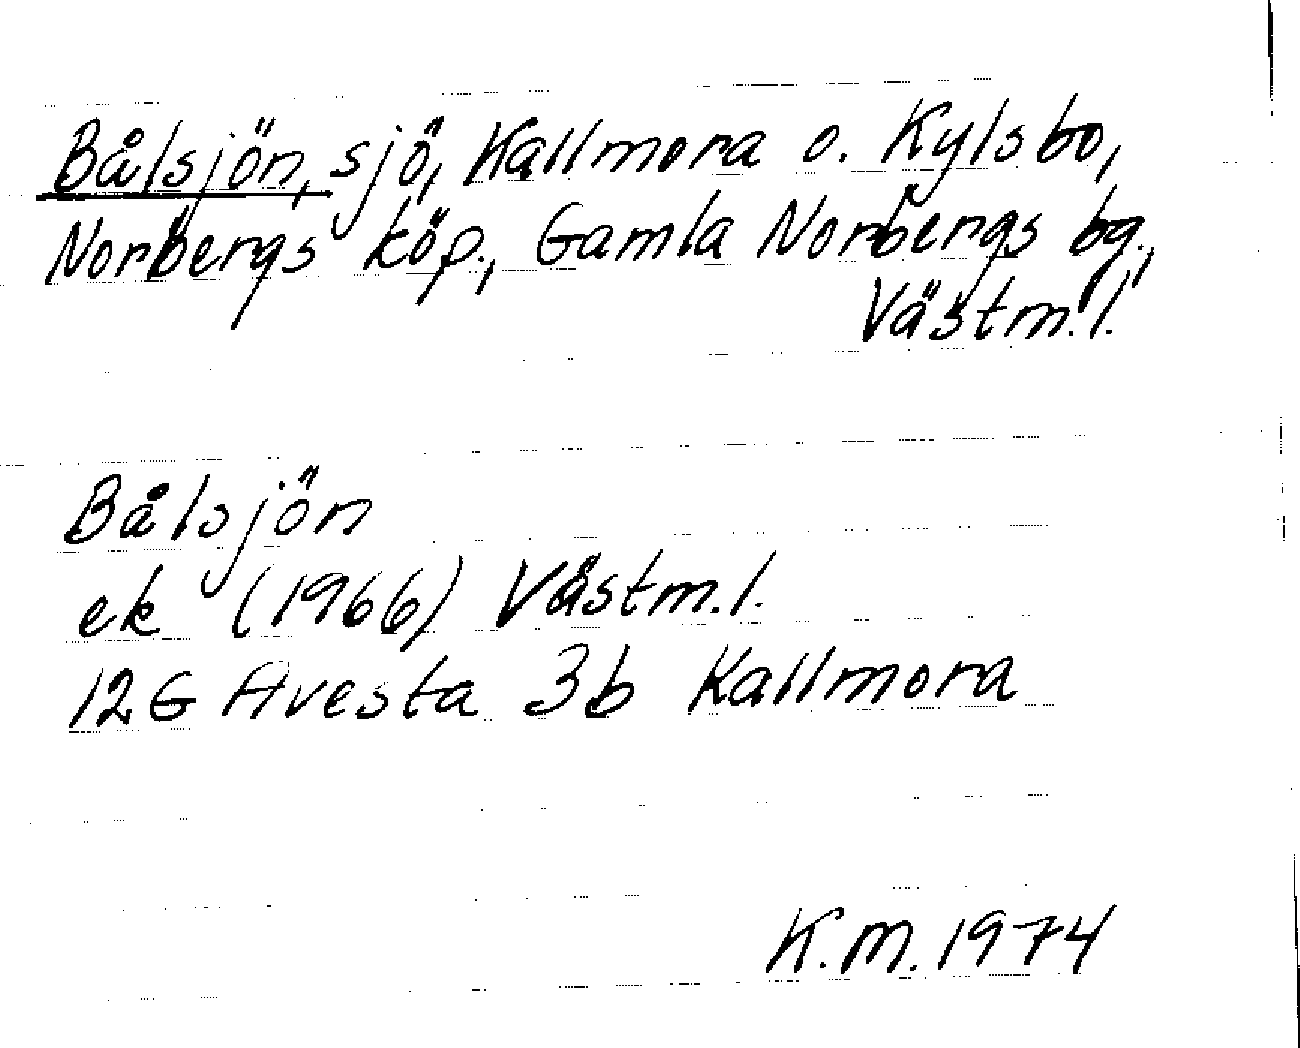 Bålsjön, sjö, Kallmora o. Kylsbo,
Norbergs köp., Gamla Norbergs bg.,
Västm. l.
Bålsjön
ek (1966) Västm. l.
12G Avesta 3b Kallmora
K.M. 1974